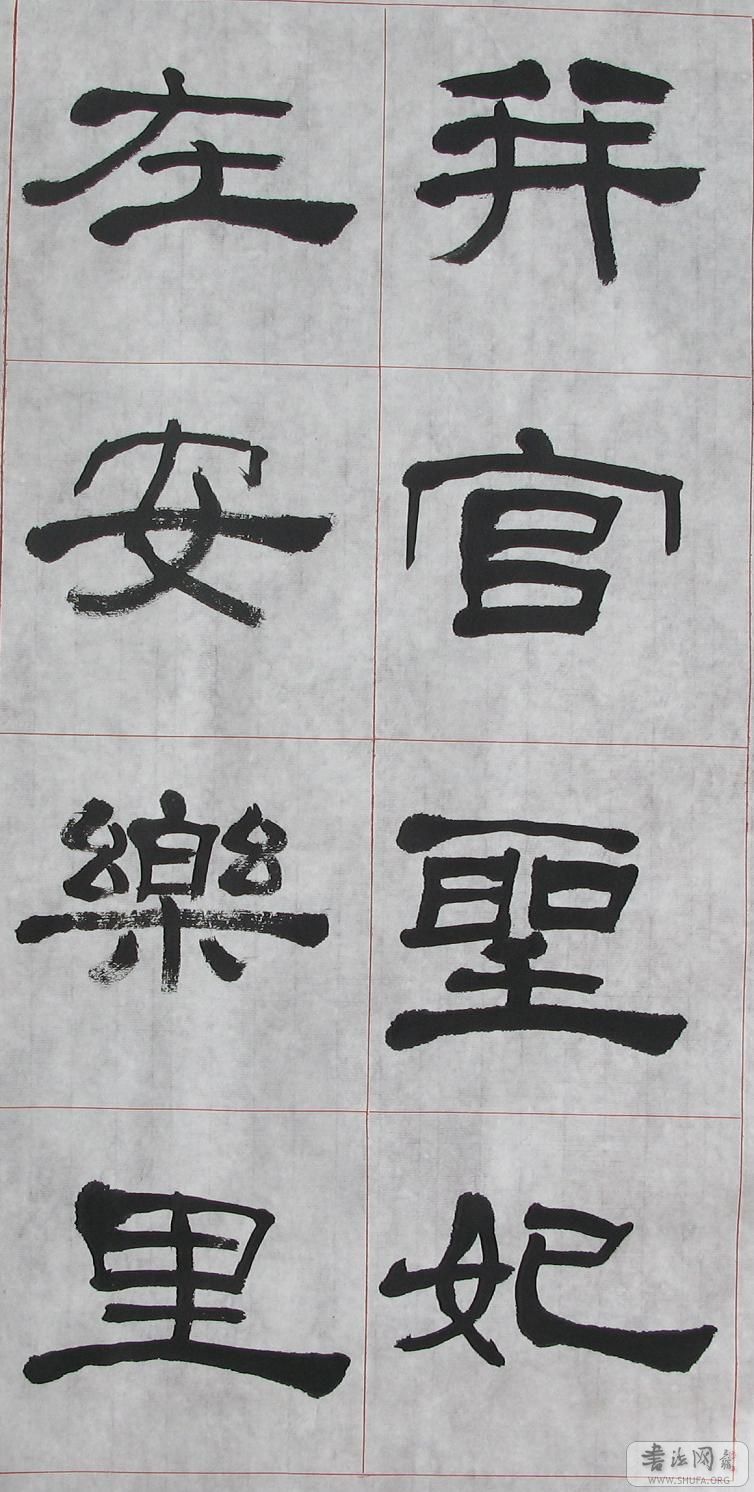 并官聖妃
在安樂里
书法网
WWW.SHUFA.ORG